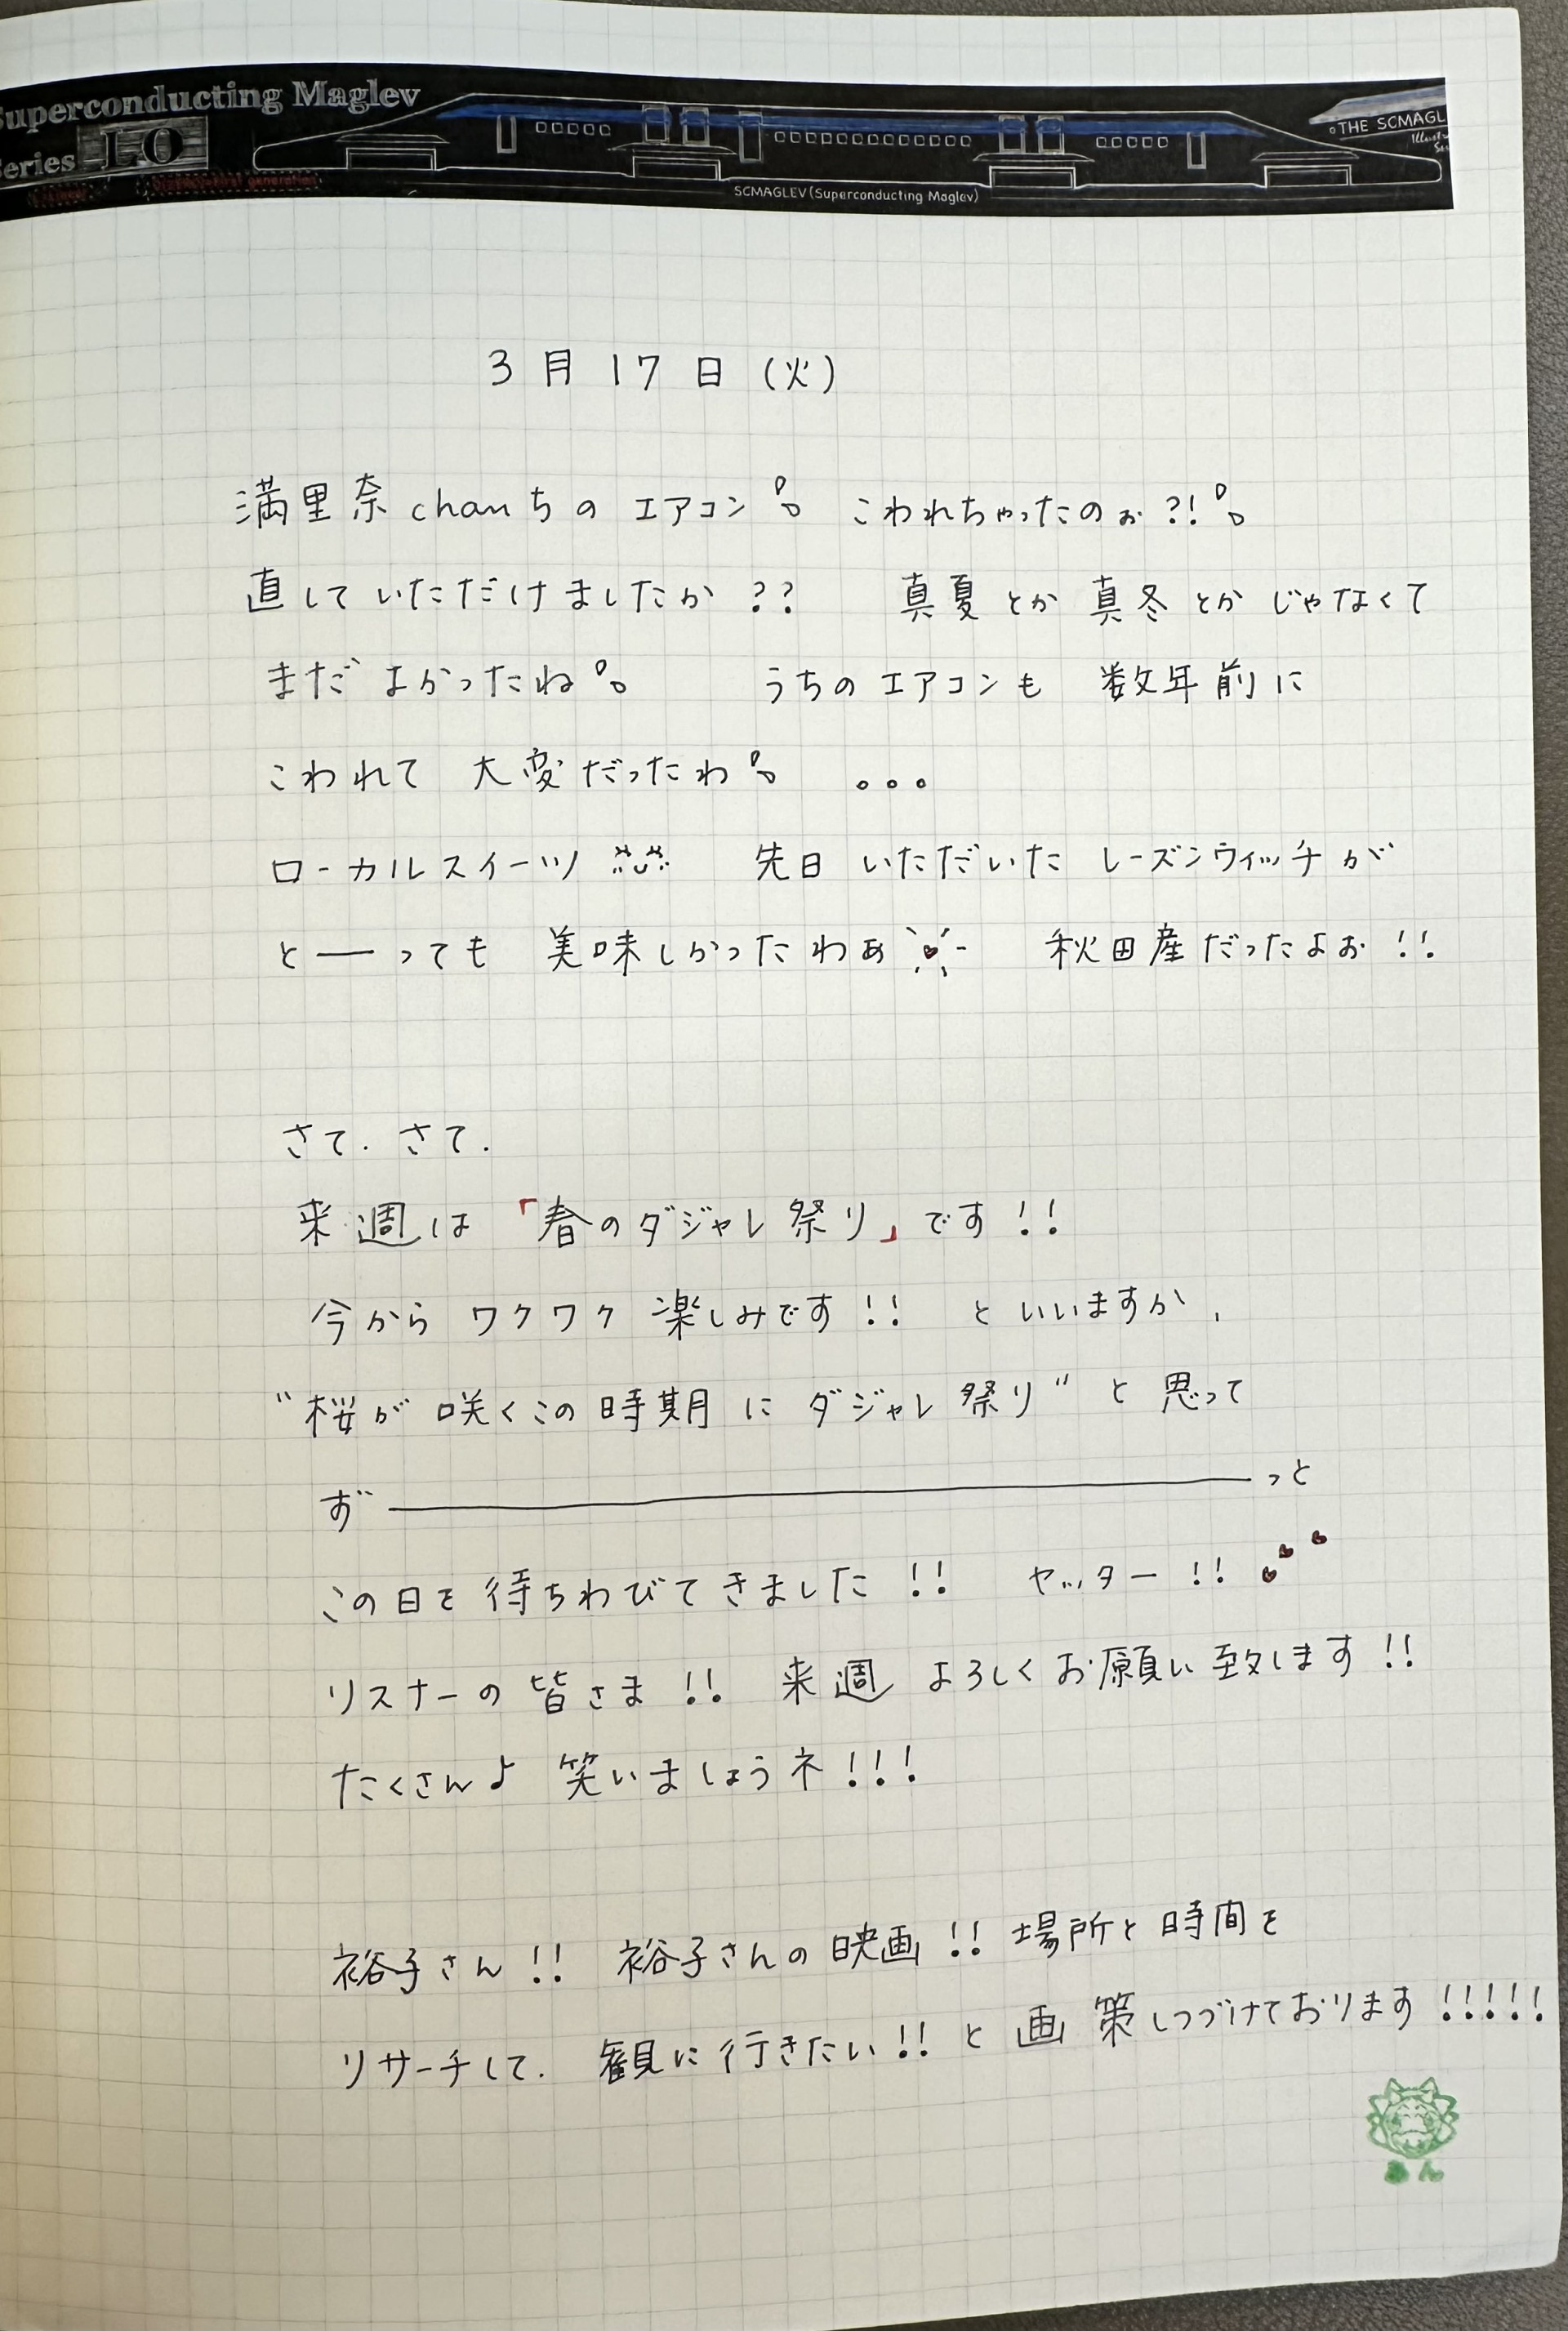 Superconducting Maglev
Series L0
THE SCMAGL
SCMAGLEV (Superconducting Maglev)
3月17日(火)
満里奈chanちの エアコン こわれちゃったのぉ?!
直していただけましたか?? 真夏とか 真冬とか じゃなくて
まだ よかったね うちの エアコンも 数年前に
こわれて 大変だったわ 。。。
ローカルスイーツ 先日 いただいた レーズンウィッチが
と――っても 美味しかったわぁ 秋田産だったよぉ!!
さて.さて.
来週は「春のダジャレ祭り」です!!
今から ワクワク 楽しみです!! といいますか、
"桜が咲くこの時期に ダジャレ祭り"と思って
ず――――――――っと
この日を待ちわびてきました!! ヤッター!!
リスナーの皆さま!! 来週 よろしくお願い致します!!
たくさん♪ 笑いましょうネ!!!
裕子さん!! 裕子さんの映画!! 場所と時間を
リサーチして. 観に行きたい!!と 画策しつづけております!!!!!
あん